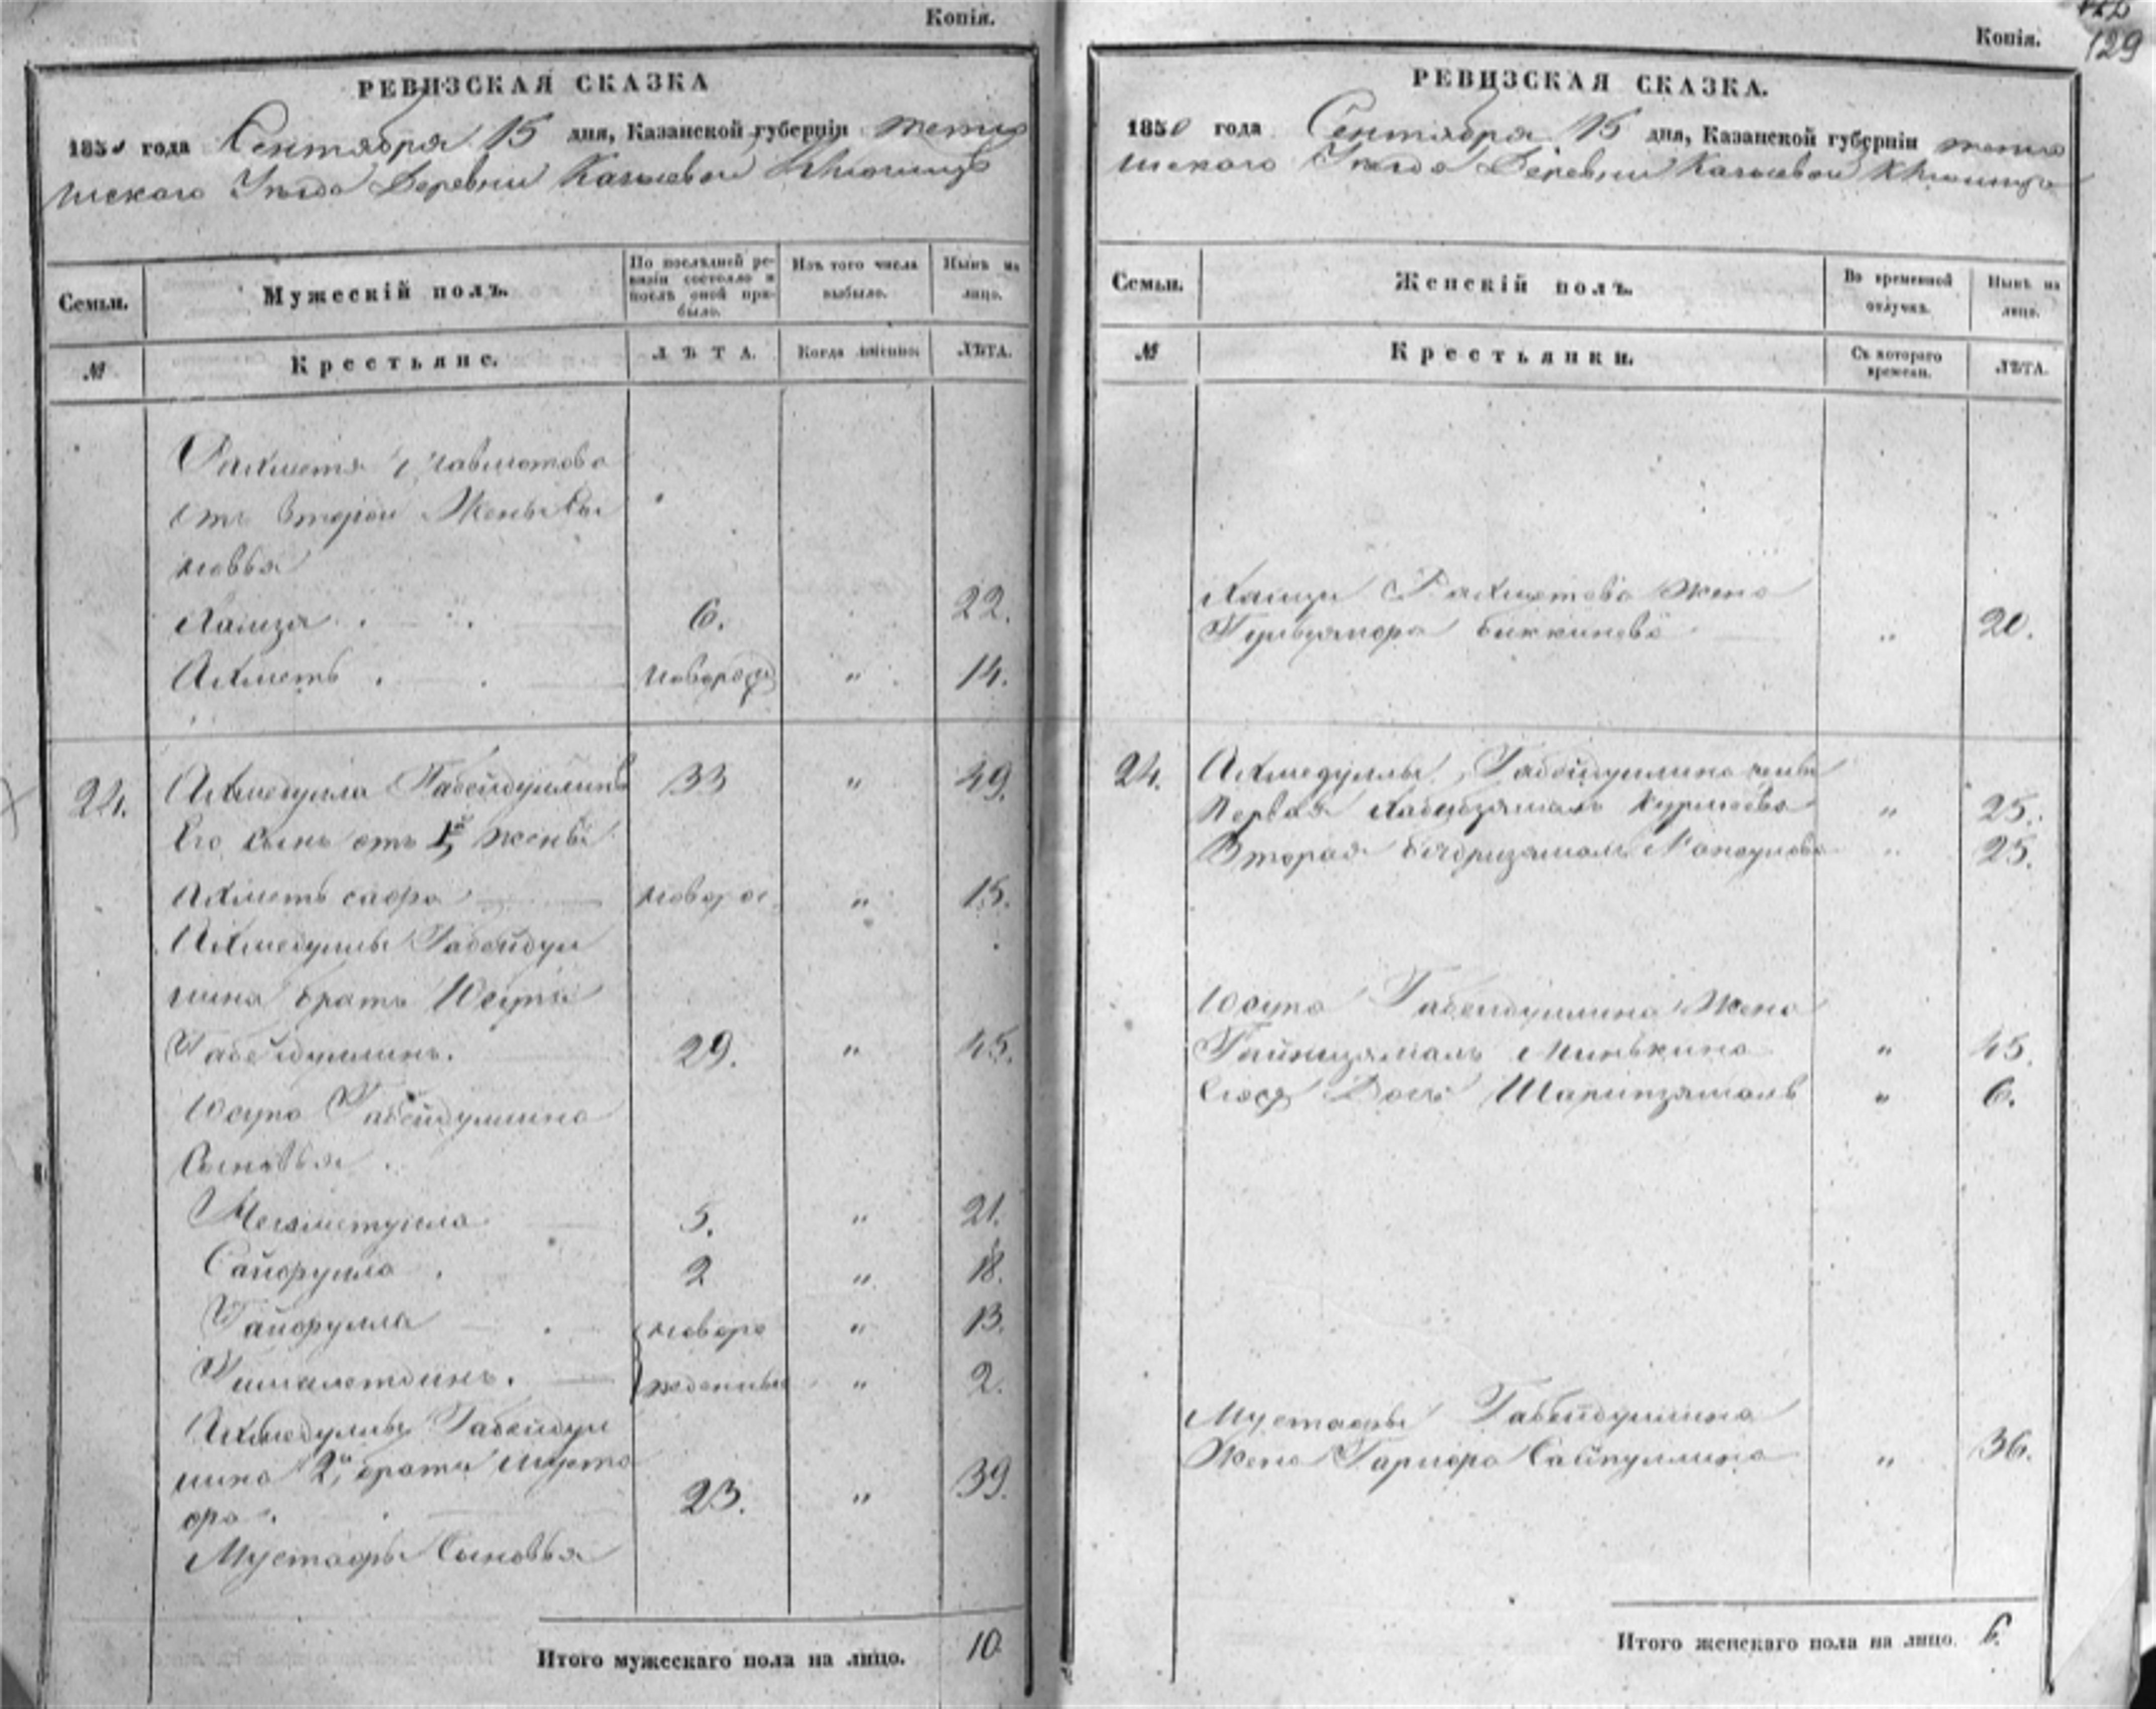 Копія.
РЕВИЗСКАЯ СКАЗКА
1850 года Сентября 15 дня, Казанской губерніи тетю
шскаго Уезда Деревни
Семьи.
Мужескій полъ.
По послѣдней ре-
визіи состояло и
послѣ оной при-
было.
Изъ того числа
выбыло.
Нынѣ на
лицо.
№
Крестьяне.
ЛѢТА.
Когда именно.
ЛѢТА.
Рахметя
отъ второй Жены Сы
новья
Хамзя 6. 22.
Ахметь новорож „ 14.
24. Ахмедулла Габейдуллинъ 33 „ 49.
Его сынъ отъ 1й жены
Ахметь сафа новорож „ 15.
Ахмедуллы Габейдул
лина братъ Юсупъ
Габейдуллинъ. 29. „ 45.
Юсупа Габейдуллина
Сыновья
5. „ 21.
Сайфулла 2 „ 18.
Гайфулла новоро „ 13.
жденные „ 2.
Ахмедуллы Габейдул
лина 2й братъ Муста
фа. 23. „ 39.
Мустафы Сыновья
Итого мужескаго пола на лицо. 10
129
Копія.
РЕВИЗСКАЯ СКАЗКА.
1850 года Сентября 15 дня, Казанской губерніи тетю
шскаго Уезда Деревни
Семьи.
Женскій полъ.
Во временной
отлучкѣ.
Нынѣ на
лицо.
№
Крестьянки.
Съ котораго
времени.
ЛѢТА.
Хамзи Рахметова Жена
Биккинева „ 20.
24. Ахмедуллы Габейдуллина жены
Первая „ 25.
Вторая „ 25.
Юсупа Габейдуллина Жена
Минькина „ 45.
Дочь Шарипзямаль „ 6.
Мустафы Габейдуллина
Жена Сайпуллина „ 36.
Итого женскаго пола на лицо. 6.